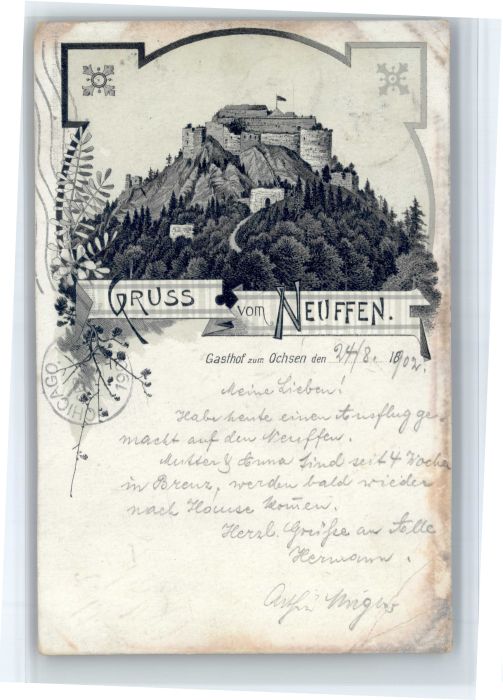 GRUSS vom NEUFFEN.
Gasthof zum Ochsen den 24/8. 1902.
CHICAGO,
Meine Lieben!
Habe heute einen Ausflug ge-
macht auf den Neuffen.
Mutter & Anna sind seit 4 Woche
in Brenz, werden bald wieder
nach House kom̅en.
Herzl. Grüße an Alle
Hermann.